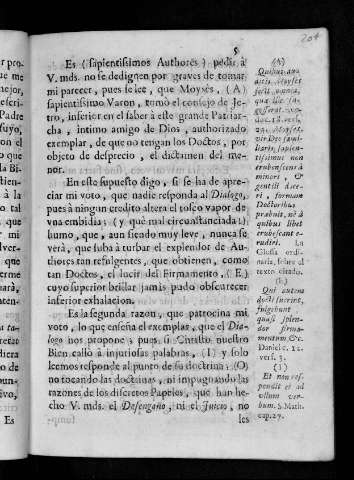 204
5
Es (sapientissimos Authores) pedir à
V. mds. no se dedignen por graves de tomar
mi parecer, pues se lee, que Moysès, (A)
sapientissimo Varon, tomò el consejo de Je-
tro, inferior en el saber à este grande Patriar-
cha, intimo amigo de Dios, authorizado
exemplar, de que no tengan los Doctos, por
objeto de desprecio, el dictamen del me-
nor.
En este supuesto digo, si se ha de apre-
ciar mi voto, que nadie responda al Dialogo,
pues à ningun credito altera el tosco vapor de
vna embidia; (y què mal circunstanciada!)
humo, que, aun siendo muy leve, nunca se
verà, que suba à turbar el explendor de Au-
thores tan refulgentes, que obtienen, como
tan Doctos, el lucir del Firmamento, (E)
cuyo superior brillar jamàs pudo obscurecer
inferior exhalacion.
Es la segunda razon, que patrocina mi
voto, lo que enseña el exemplar, que el Dia-
logo nos propone; pues si Christo nuestro
Bien callò à injuriosas palabras, (I) y solo
leemos responde al punto de su doctrina: (O)
no tocando las doctrinas, ni impugnando las
razones de los discretos Papeles, que han he-
cho V. mds. el Desengaño, ni el Juicio, no
les
(A)
auditis Moyses
fecit omnia,
quæ ille
18.
Moyses
vir
sapien-
tissimus non
erubescens à
minori &
gentili doce-
ri, formam
Doctoribus
præbuit, nè à
quibus libet
erubescant e-
rudiri. La
Glossa ordi-
naria, sobre al
texto citado.
(E)
Qui autem
docti fuerint,
fulgebunt
quasi splen-
dor firma-
mentum, &c.
Daniel c. 12.
vers. 3.
(I)
Et non res-
pondit ei ad
ullum ver-
bum. S. Math.
cap. 27.